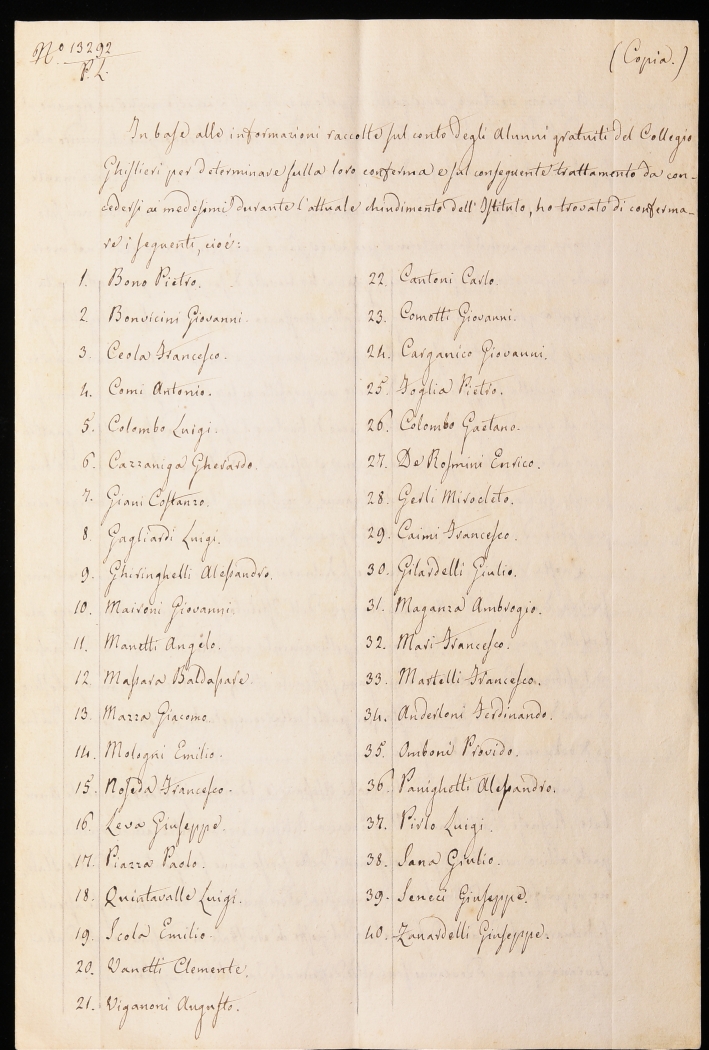 N.º 13292
P. L.
(Copia.)
In base alle informazioni raccolte sul conto degli Alunni gratuiti del Collegio
Ghislieri per determinare sulla loro conferma e sul conseguente trattamento da con-
cedersi ai medesimi durante l'attuale chiudimento dell'Istituto, ho trovato di conferma-
re i seguenti, cioè:
1. Bono Pietro.
2 Bonvicini Giovanni.
3. Ceola Francesco.
4. Comi Antonio.
5. Colombo Luigi.
6. Cazzaniga Gherardo.
7. Giani Costanzo.
8. Gagliardi Luigi.
9. Ghiringhelli Alessandro.
10. Maironi Giovanni.
11. Manetti Angelo.
12 Massara Baldassare.
13. Mazza Giacomo.
14. Mologni Emilio.
15. Noseda Francesco.
16. Leva Giuseppe.
17. Piazza Paolo.
18. Quintavalle Luigi.
19. Scola Emilio.
20. Vanetti Clemente.
21. Viganoni Augusto.
22. Cantoni Carlo.
23. Comotti Giovanni.
24. Carganico Giovanni.
25. Foglia Pietro.
26. Colombo Gaetano.
27. De Rosmini Enrico.
28. Gerli Mirocleto.
29. Caimi Francesco.
30. Gilardelli Giulio.
31. Maganza Ambrogio.
32. Mari Francesco.
33. Martelli Francesco.
34. Anderloni Ferdinando.
35. Omboni Provido.
36. Panighetti Alessandro.
37. Pirlo Luigi.
38. Sana Giulio.
39. Seneci Giuseppe.
40. Zanardelli Giuseppe.